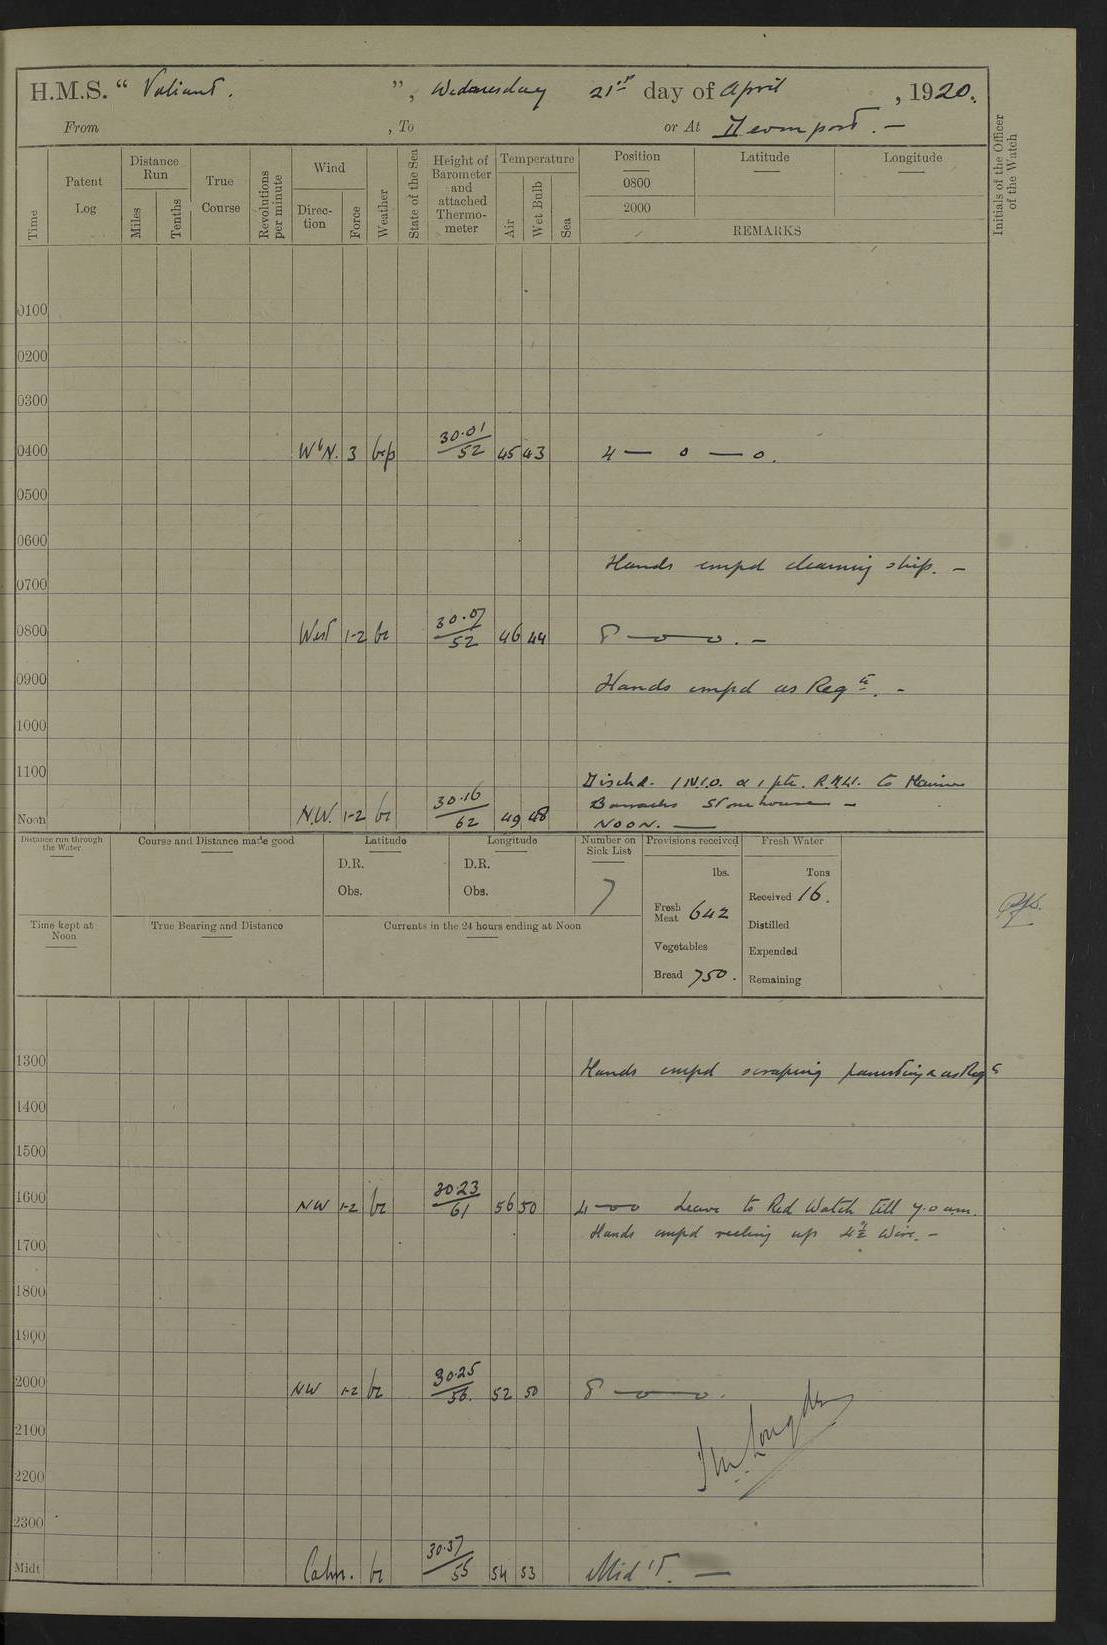 H.M.S. “ Valiant. ”, Wednesday 21st day of April , 1920.
From , To or At Devonport. —
Time
Patent Log
Distance Run
Miles
Tenths
True Course
Revolutions per minute
Wind
Direction
Force
Weather
State of the Sea
Height of Barometer and attached Thermometer
Temperature
Air
Wet Bulb
Sea
Position
0800
2000
Latitude
Longitude
REMARKS
Initials of the Officer of the Watch
0100
0200
0300
0400 W b N. 3 bcp 30.01/52 45 43 4 — 0 — 0.
0500
0600
Hands empd cleaning ship. —
0700
0800 West 1-2 bc 30.07/52 46 44 8 — 0 — 0. —
0900 Hands empd as Reqte. —
1000
1100
Dischd. 1 N.C.O. & 1 pte. R.M.L.I. to Marine
Barracks Stonehouse —
Noon N.W. 1-2 bc 30.16/62 49 48 NOON. —
Distance run through the Water
Course and Distance made good
Latitude
D.R.
Obs.
Longitude
D.R.
Obs.
Number on Sick List
7
Provisions received
lbs.
Fresh Meat 642
Vegetables
Bread 750.
Fresh Water
Tons
Received 16.
Distilled
Expended
Remaining
Time kept at Noon
True Bearing and Distance
Currents in the 24 hours ending at Noon
1300 Hands empd scraping painting & as Reqte
1400
1500
1600 NW 1-2 bc 30.23/61 56 50 4 — 0 0 Leave to Red Watch till 7.0 a.m.
Hands empd reeling up 4½" Wire. —
1700
1800
1900
2000 NW 1-2 bc 30.25/56. 52 50 8 — 0 — 0.
2100
2200
2300
Midt Calm. bc 30.37/55 54 53 Mid'T. —